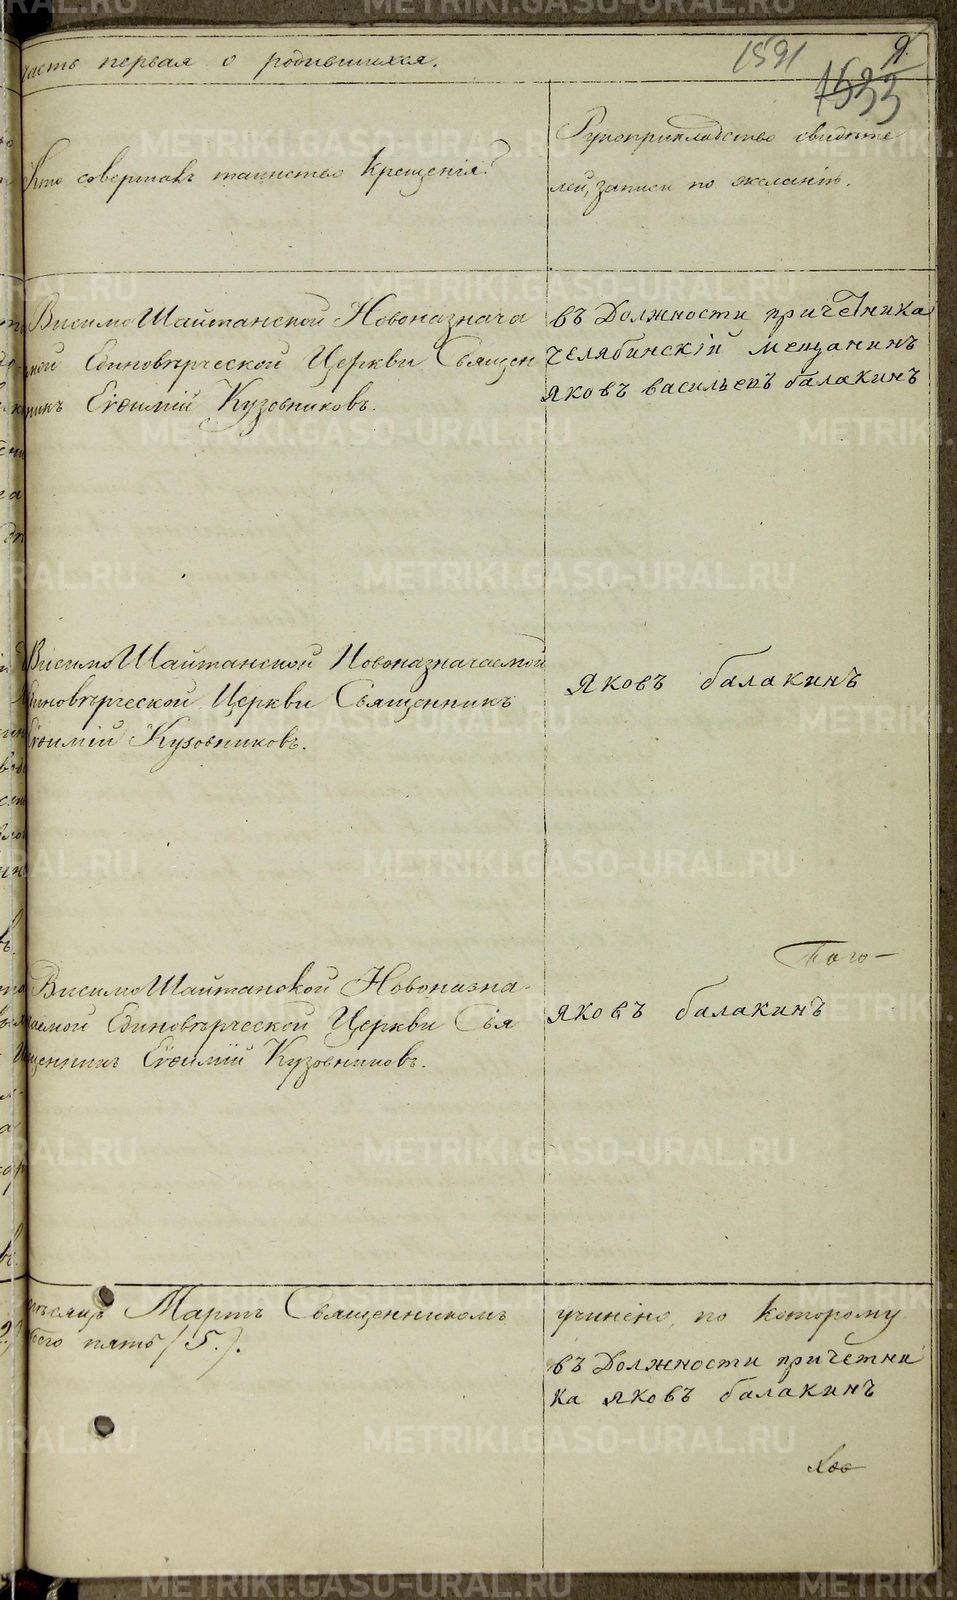 часть первая о родившихся.
1591
9.
1533
Кто совершалъ таинство Крещенія?
Рукоприкладство свидѣте
лей, записи по желанію.
Висимо Шайтанской Новоназнача
мой Единовѣрческой Церкви Священ
никъ Евѳимій Кузовниковъ.
въ Должности причетника
челябинскій мещанинъ
яковъ васильевъ балакинъ
Висимо Шайтанской Новоназначаемой
Единовѣрческой Церкви Священникъ
Евѳимій Кузовниковъ.
яковъ балакинъ
Того-
Висимо Шайтанской Новоназна-
чаемой Единовѣрческой Церкви Свя
щенникъ Евѳимій Кузовниковъ.
яковъ балакинъ
мѣсяцъ Мартъ Священникомъ
пять (5.).
учинено, по которому
въ Должности причетни
ка яковъ балакинъ
METRIKI.GASO-URAL.RU